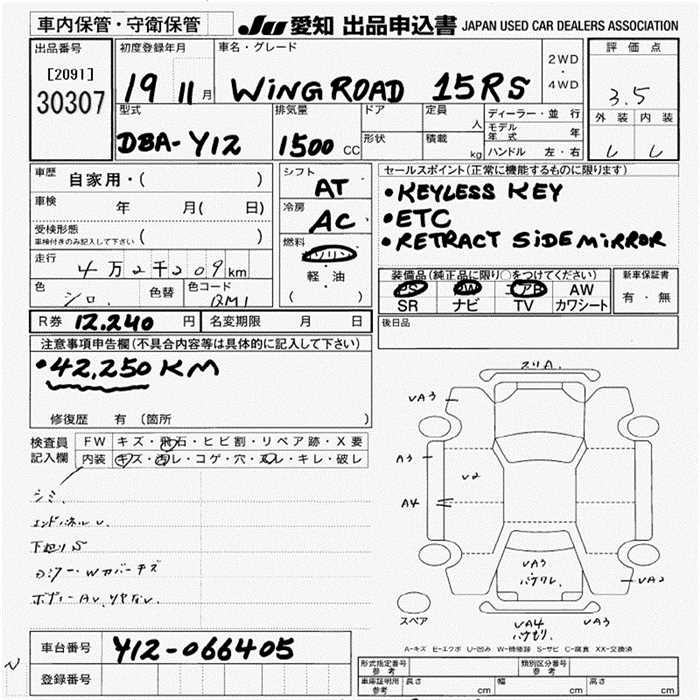 車内保管・守衛保管
JU 愛知 出品申込書 JAPAN USED CAR DEALERS ASSOCIATION
出品番号
[2091]
30307
初度登録年月
19 11月
車名・グレード
WINGROAD 15RS
2WD
・
4WD
評価点
3.5
外装 内装
型式
DBA-Y12
排気量
1500 CC
ドア
形状
定員 人
積載 kg
ディーラー・並行
モデル年式 年
ハンドル 左・右
車歴 自家用・( )
車検 年 月( 日)
受検形態
車検付きのみ記入して下さい ( )
走行 4万2千209km
色 シロ
色替
色コード
シフト
AT
冷房
AC
燃料
ガソリン
・
軽・油
( )
セールスポイント(正常に機能するものに限ります)
・KEYLESS KEY
・ETC
・RETRACT SIDE MIRROR
装備品(純正品に限り○をつけてください)
PS PW エアB AW
SR ナビ TV カワシート
新車保証書
有・無
R券 12.240 円
名変期限 月 日
後日品
注意事項申告欄(不具合内容等は具体的に記入して下さい)
・42,250 KM
修復歴 有 (箇所 )
検査員
記入欄
FW キズ・飛石・ヒビ割・リペア跡・X要
内装 キズ・汚レ・コゲ・穴・ヌレ・キレ・破レ
シミ
エンドパネル U
下廻り S
VA3
A3
V2
A4
VA3
VA2
VA4
VA3
スペア
A-キズ E-エクボ U-凹み W-補修跡 S-サビ C-腐食 XX-交換済
車台番号 Y12-066405
登録番号
形式指定番号
参考
類別区分番号
参考
車庫証明用
参考
長さ cm
幅 cm
高さ cm